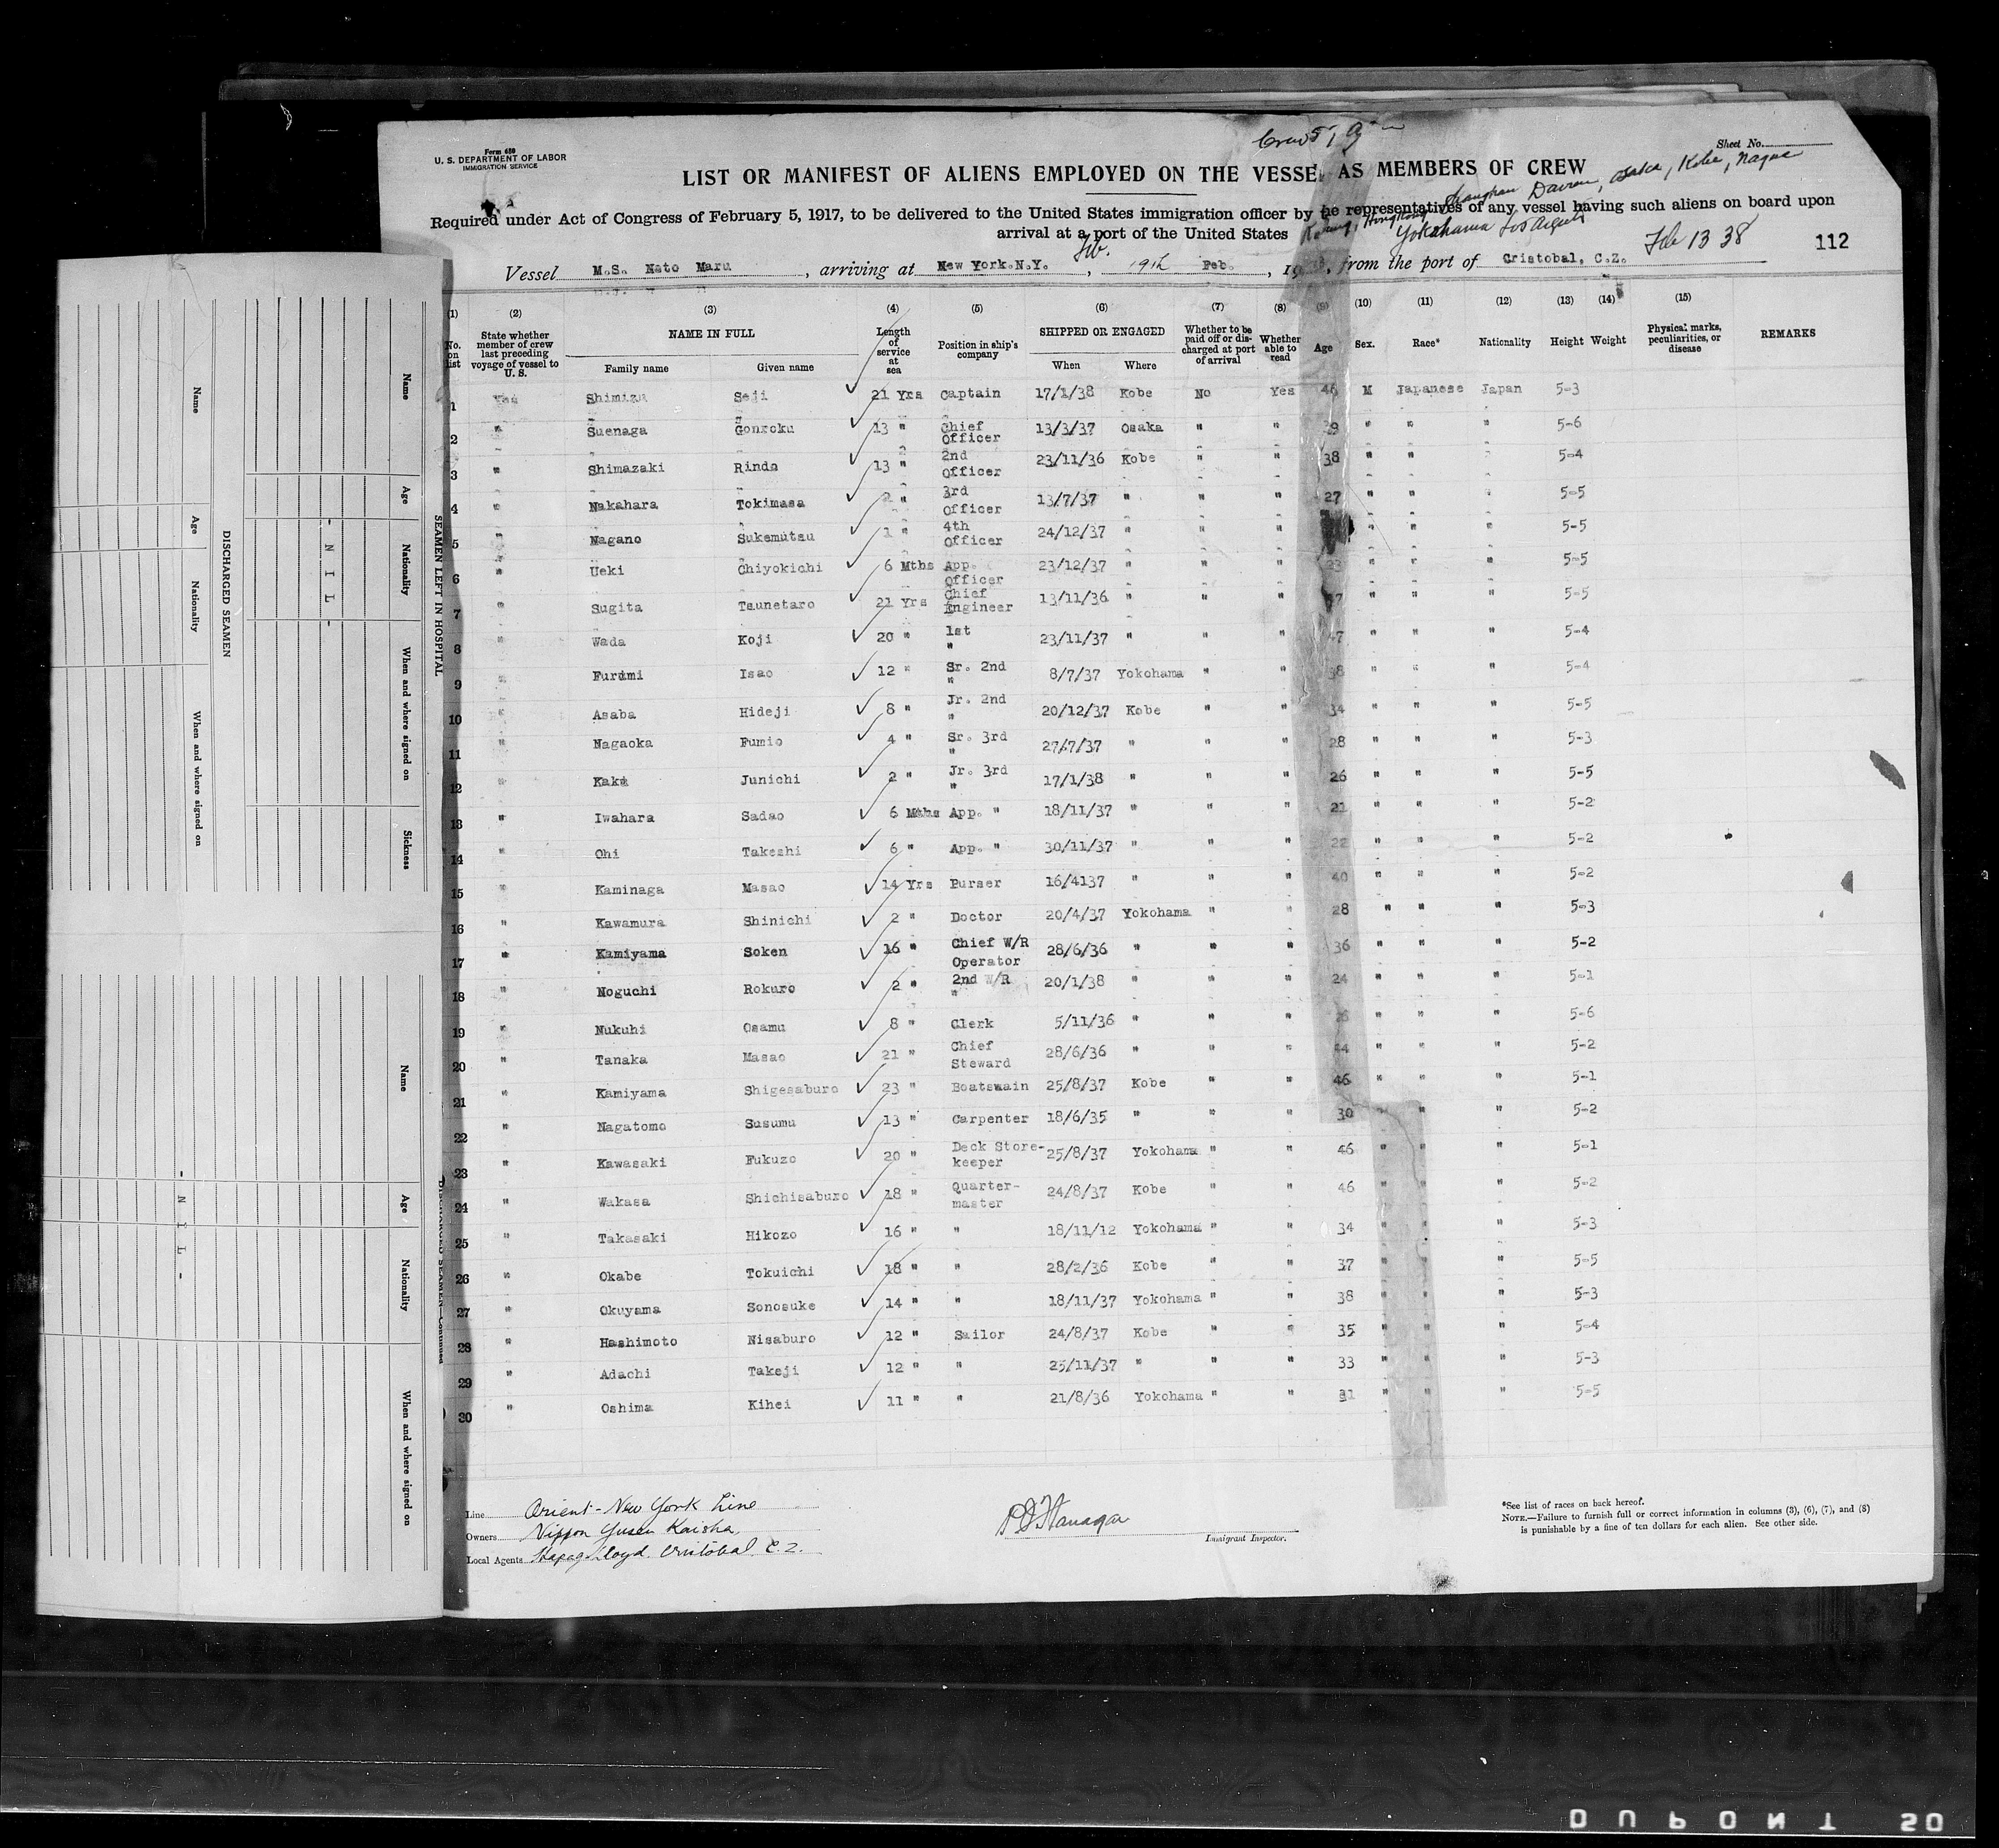 Form 680
U. S. DEPARTMENT OF LABOR
IMMIGRATION SERVICE
Sheet No.
LIST OR MANIFEST OF ALIENS EMPLOYED ON THE VESSEL AS MEMBERS OF CREW
Required under Act of Congress of February 5, 1917, to be delivered to the United States immigration officer by the representatives of any vessel having such aliens on board upon
arrival at a port of the United States
Shanghai Dairen, Osaka, Kobe, Nagoya
Hongkong
Yokohama Los Angeles
Feb 13 38
112
Vessel M.S. Noto Maru, arriving at New York.N.Y., 19th Feb., 1938, from the port of Cristobal, C.Z.
(1) (2) (3) (4) (5) (6) (7) (8) (9) (10) (11) (12) (13) (14) (15)
No. on list
State whether member of crew last preceding voyage of vessel to U. S.
NAME IN FULL
Family name
Given name
Length of service at sea
Position in ship's company
SHIPPED OR ENGAGED
When
Where
Whether to be paid off or discharged at port of arrival
Whether able to read
Age
Sex.
Race*
Nationality
Height
Weight
Physical marks, peculiarities, or disease
REMARKS
1 Yes Shimizu Seji 21 Yrs Captain 17/1/38 Kobe No Yes 46 M Japanese Japan 5-3
2 " Suenaga Gonroku 13 " Chief Officer 13/3/37 Osaka " " 39 " " " 5-6
3 " Shimazaki Rindo 13 " 2nd Officer 23/11/36 Kobe " " 38 " " " 5-4
4 " Nakahara Tokimasa 2 " 3rd Officer 13/7/37 " " " 27 " " " 5-5
5 " Nagano Sukemutsu 1 " 4th Officer 24/12/37 " " " " " " 5-5
6 " Ueki Chiyokichi 6 Mths App. Officer 23/12/37 " " " 23 " " " 5-5
7 " Sugita Tsunetaro 21 Yrs Chief Engineer 13/11/36 " " " 47 " " " 5-5
8 " Wada Koji 20 " 1st " 23/11/37 " " " 47 " " " 5-4
9 " Furumi Isao 12 " Sr. 2nd " 8/7/37 Yokohama " " 38 " " " 5-4
10 " Asaba Hideji 8 " Jr. 2nd " 20/12/37 Kobe " " 34 " " " 5-5
11 " Nagaoka Fumio 4 " Sr. 3rd " 27/7/37 " " " 28 " " " 5-3
12 " Kaku Junichi 2 " Jr. 3rd " 17/1/38 " " " 26 " " " 5-5
13 " Iwahara Sadao 6 Mths App. " 18/11/37 " " " 21 " " " 5-2
14 " Ohi Takeshi 6 " App. " 30/11/37 " " " 22 " " " 5-2
15 " Kaminaga Masao 14 Yrs Purser 16/4137 " " " 40 " " " 5-2
16 " Kawamura Shinichi 2 " Doctor 20/4/37 Yokohama " " 28 " " " 5-3
17 " Kamiyama Soken 16 " Chief W/R Operator 28/6/36 " " " 36 " " " 5-2
18 " Noguchi Rokuro 2 " 2nd W/R " 20/1/38 " " " 24 " " " 5-1
19 " Nukuhi Osamu 8 " Clerk 5/11/36 " " " " " " 5-6
20 " Tanaka Masao 21 " Chief Steward 28/6/36 " " " 44 " " " 5-2
21 " Kamiyama Shigesaburo 23 " Boatswain 25/8/37 Kobe " " 46 " " " 5-1
22 " Nagatomo Susumu 13 " Carpenter 18/6/35 " " " 30 " " " 5-2
23 " Kawasaki Fukuzo 20 " Deck Store-keeper 25/8/37 Yokohama " " 46 " " " 5-1
24 " Wakasa Shichisaburo 18 " Quarter-master 24/8/37 Kobe " " 46 " " " 5-2
25 " Takasaki Hikozo 16 " " 18/11/12 Yokohama " " 34 " " " 5-3
26 " Okabe Tokuichi 18 " " 28/2/36 Kobe " " 37 " " " 5-5
27 " Okuyama Sonosuke 14 " " 18/11/37 Yokohama " " 38 " " " 5-3
28 " Hashimoto Nisaburo 12 " Sailor 24/8/37 Kobe " " 35 " " " 5-4
29 " Adachi Takeji 12 " " 25/11/37 " " " 33 " " " 5-3
30 " Oshima Kihei 11 " " 21/8/36 Yokohama " " 31 " " " 5-5
Line Orient-New York Line
Owners Nippon Yusen Kaisha,
Local Agents Hapag-Lloyd. Cristobal. C.Z.
Immigrant Inspector.
*See list of races on back hereof.
NOTE.—Failure to furnish full or correct information in columns (3), (6), (7), and (8)
is punishable by a fine of ten dollars for each alien. See other side.
SEAMEN LEFT IN HOSPITAL
Name Age Nationality When and where signed on Sickness
- N I L -
DISCHARGED SEAMEN
Name Age Nationality When and where signed on
DISCHARGED SEAMEN—Continued
Name Age Nationality When and where signed on
- N I L -
DUPONT 50